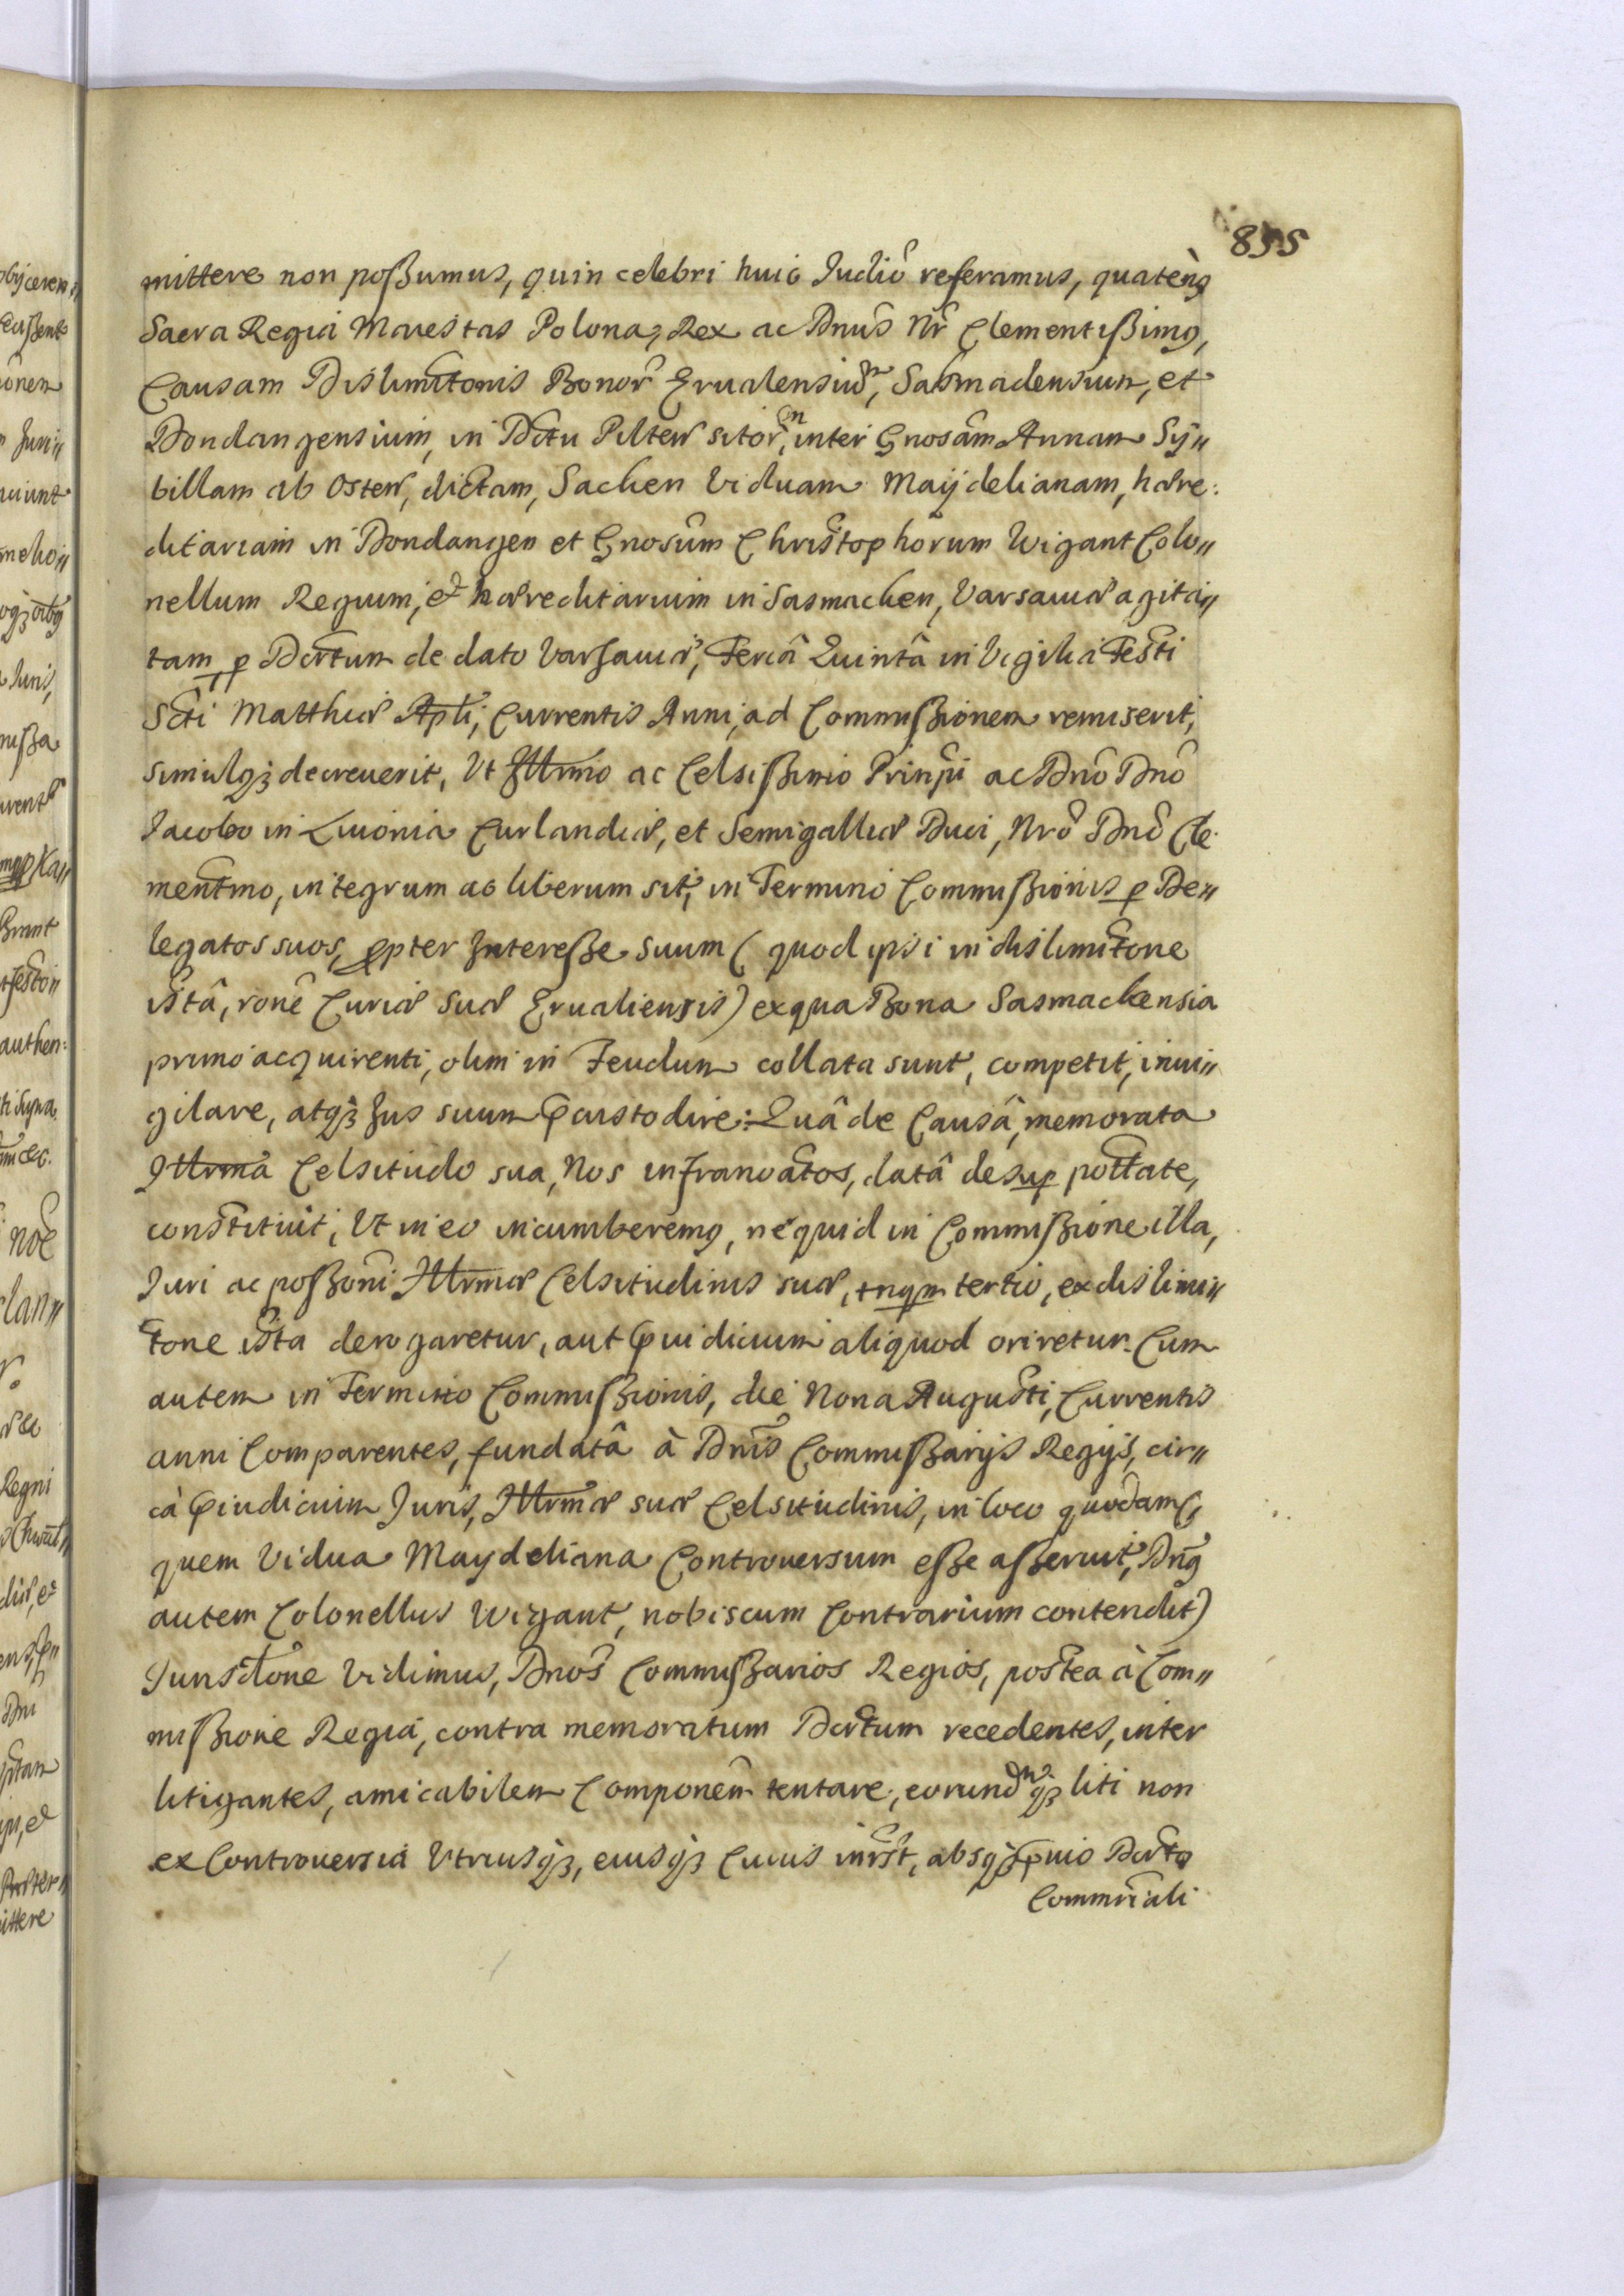 855
mittere non poßumus, quin celebri huic Judiô referamus, quatenꝯ
Sacra Regia Maiestas Polona, Rex ac Dnus Nr̂ Clementißimꝯ,
Causam Dislimitônis Bonor̂ Erualensium, Sasmacensium, et
Dondangensium, in Dctu Pilten sitor̂, inter Gnosâm Annam Sÿ„
billam ab Osten, dictam, Sacken Viduam Maijdelianam, hære:
ditariam in Dondangen et Gnosûm Christophorum Wigant Colo„
nellum Regium, et hæreditarium in Sasmacken, Varsauiæ agita„
tam, ꝑ Dcrtum de dato Varsauiæ, Feriâ Quintâ in Vigilia Festi
Scti Matthiæ Apli, Currentis Anni, ad Commißionem remiserit,
simulqꝫ decreuerit, Vt Illrmo ac Celsißimo Prinpi ac Dnô Dnô
Jacobo in Liuonia Curlandiæ, et Semigalliæ Duci, Nrô Dnô Cle
mentmo, integrum ac liberum sit, in Termino Commißionis ꝑ De„
legatos suos, ꝓpter Intereße suum ( quod ipsi in dislimitône
istâ, ronê Curiæ suæ Erualiensis) ex qua Bona Sasmackensia
primo acquirenti, olim in Feudum collata sunt, competit, inui„
gilare, atqꝫ Jus suum p̃custodire: Quâ de Causâ, memorata
Illrma Celsitudo sua, Nos infranoâtos, datâ desuꝑ pottate,
constituit, Vt in eo incumberemꝯ, ne quid in Commißione illa,
Juri ac poßoni Illrmæ Celsitudinis suæ, tnqm tertio, ex dislimi„
tone ista derogaretur, aut p̃iudicium aliquod oriretur. Cum
autem in Termino Commißionis, die Nona Augusti, Currentis
anni Comparentes, fundatâ à Dnis Commißarijs Regijs, cir„
cà p̃iudicium Juris, Illrmæ suæ Celsitudinis, in loco quodam (
quem Vidua Maydeliana Controuersum eße aßeruit, Dnꝯ
autem Colonellus Wigant, nobiscum Contrarium contendit)
Jurisdtône Vidimus, Dnos Commißarios Regios, postea à Com„
mißione Regiâ, contra memoratum Dcrtum recedentes, inter
litigantes, amicabilem Componêm tentare, eorundmqꝫ liti non
ex Controuersia Vtriusqꝫ, eiusqꝫ Cuius inrst, absqꝫ p̃uio Dcrto
Commrîali